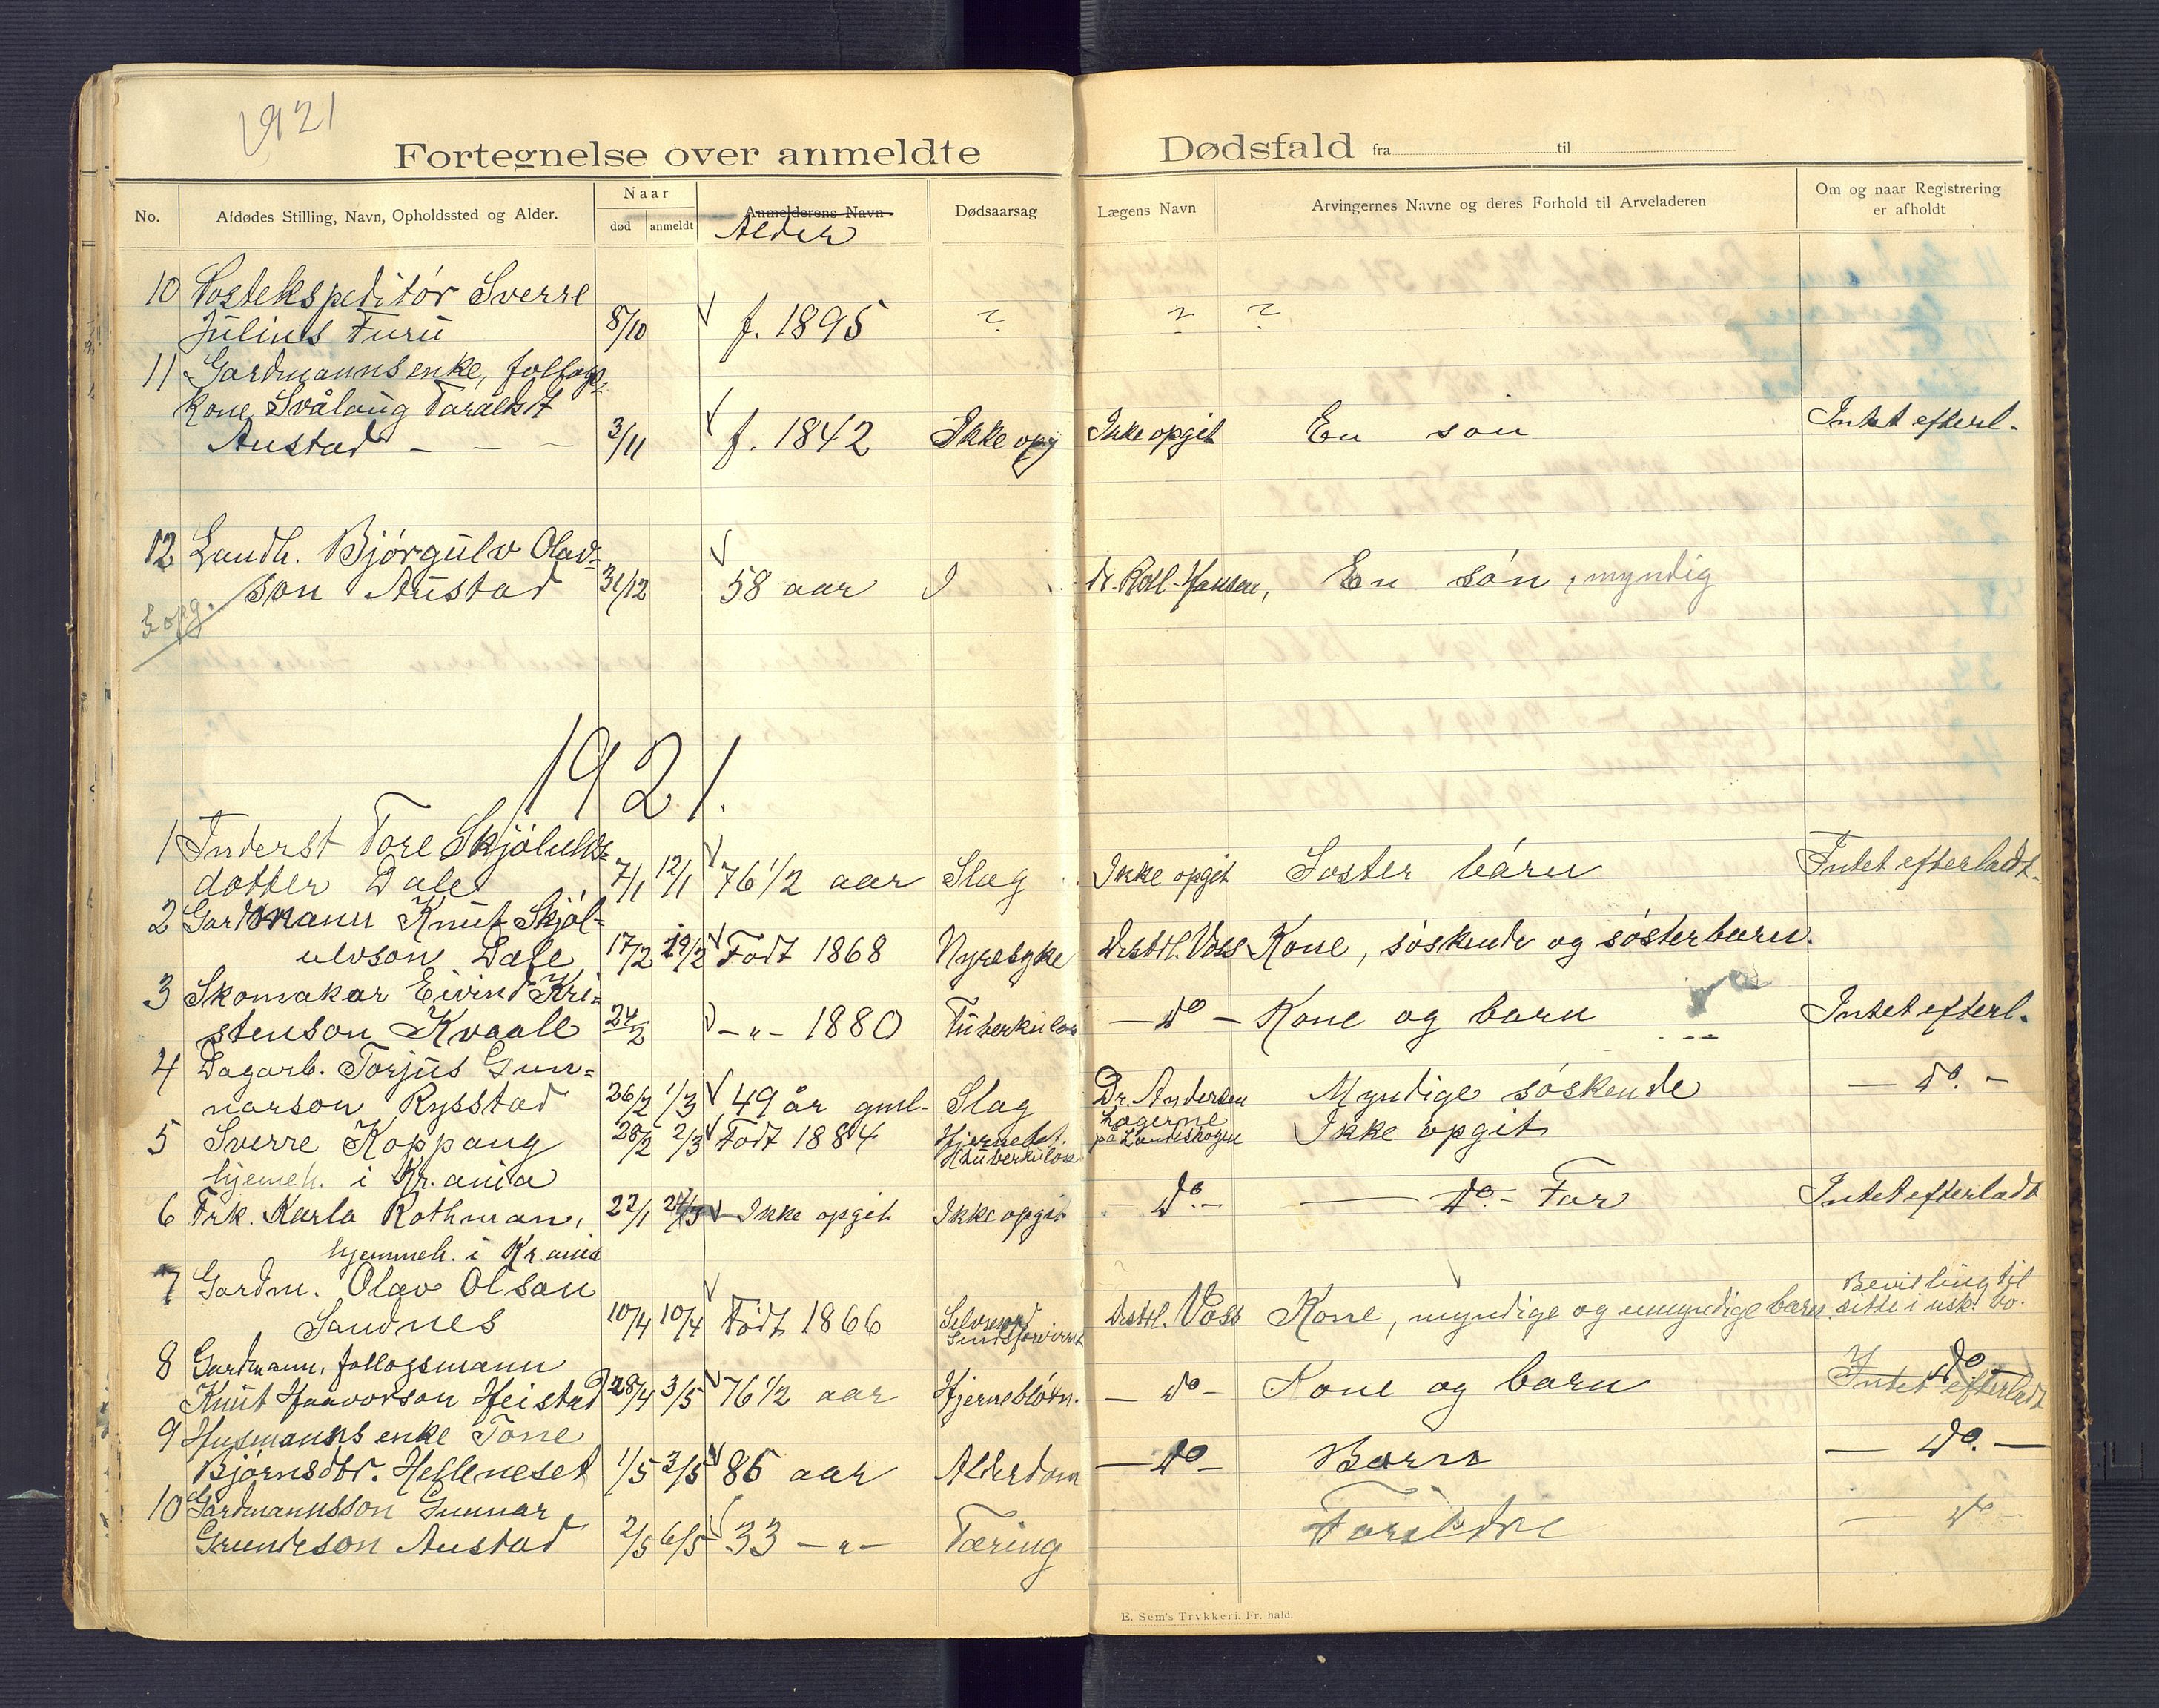 1921
Fortegnelse over anmeldte Dødsfald fra til
No. Afdødes Stilling, Navn, Opholdssted og Alder. Naar død anmeldt Anmelderens Navn Alder Dødsaarsag Lægens Navn Arvingernes Navne og deres Forhold til Arveladeren Om og naar Registrering er afholdt
10 Postekspeditör Sverre
Julius Furu 8/10 f. 1895 ? ? ?
11 Gardmannsenke, follogs-
kone Svålaug Taraldsdt
Austad - - - 3/11 f. 1842 Ikke opg Ikke opgit En sön Intet efterl.
12 Landh. Björgulv Olav=
son Austad 31/12 58 aar dr. Roll-Hansen, En sön, myndig
1921.
1 Inderst Tore Skjölulds=
dotter Dale 7/1 12/1 76 1/2 aar Slag Ikke opgit Söster börn Intet efterladt.
2 Gardmann Knut Skjöl-
ulvson Dale 17/2 19/2 Födt 1868 Nyresyke Distrl. Voss Kone, söskende og sösterbarn.
3 Skomakar Eivind Kri=
stenson Kvaale 24/2 -"- 1880 Tuberkulos - do - Kone og barn Intet efterl.
4 Dagarb. Torjus Gun=
narson Rysstad 26/2 1/3 49 år gml. Slag Dr. Andersen Myndige söskende - do. -
5 Sverre Koppang 28/2 2/3 Födt 1884 Hjernebet. Tuberkulose Lægerne på Landeskogen Ikke opgit
hjemeh. i Kr.ania
6 Frk. Karla Rothman, 22/1 Ikke opgit Ikke opgit - do. - - do - Far Intet efterladt
hjemmeh. i Kr.ania
7 Gardm. Olav Olson
Sandnes 10/4 10/4 Födt 1866 Selvmord Sindsforvirret Distrl. Voss Kone, myndige og umyndige barn. Bevilling til sitte i usk. bo.
8 Gardmann, follogsmann
Knut Haavorson Heistad 28/4 3/5 76 1/2 aar Hjerneblödn. - do - Kone og barn Intet efterladt do
9 Husmannsenke Tone
Björnsdtr. Helleneset 1/5 3/5 86 aar Alderdom - do - Barn - do. -
10 Gardmannsson Gunnar
Gunderson Austad 2/5 6/5 33 -"- Tæring Foreldre - do -
E. Sem's Trykkeri. Fr. hald.